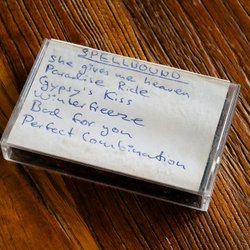 SPELLBOUND
She gives me heaven
Paradise Ride
Gypsy's Kiss
Winterfreeze
Bad for you
Perfect Combination